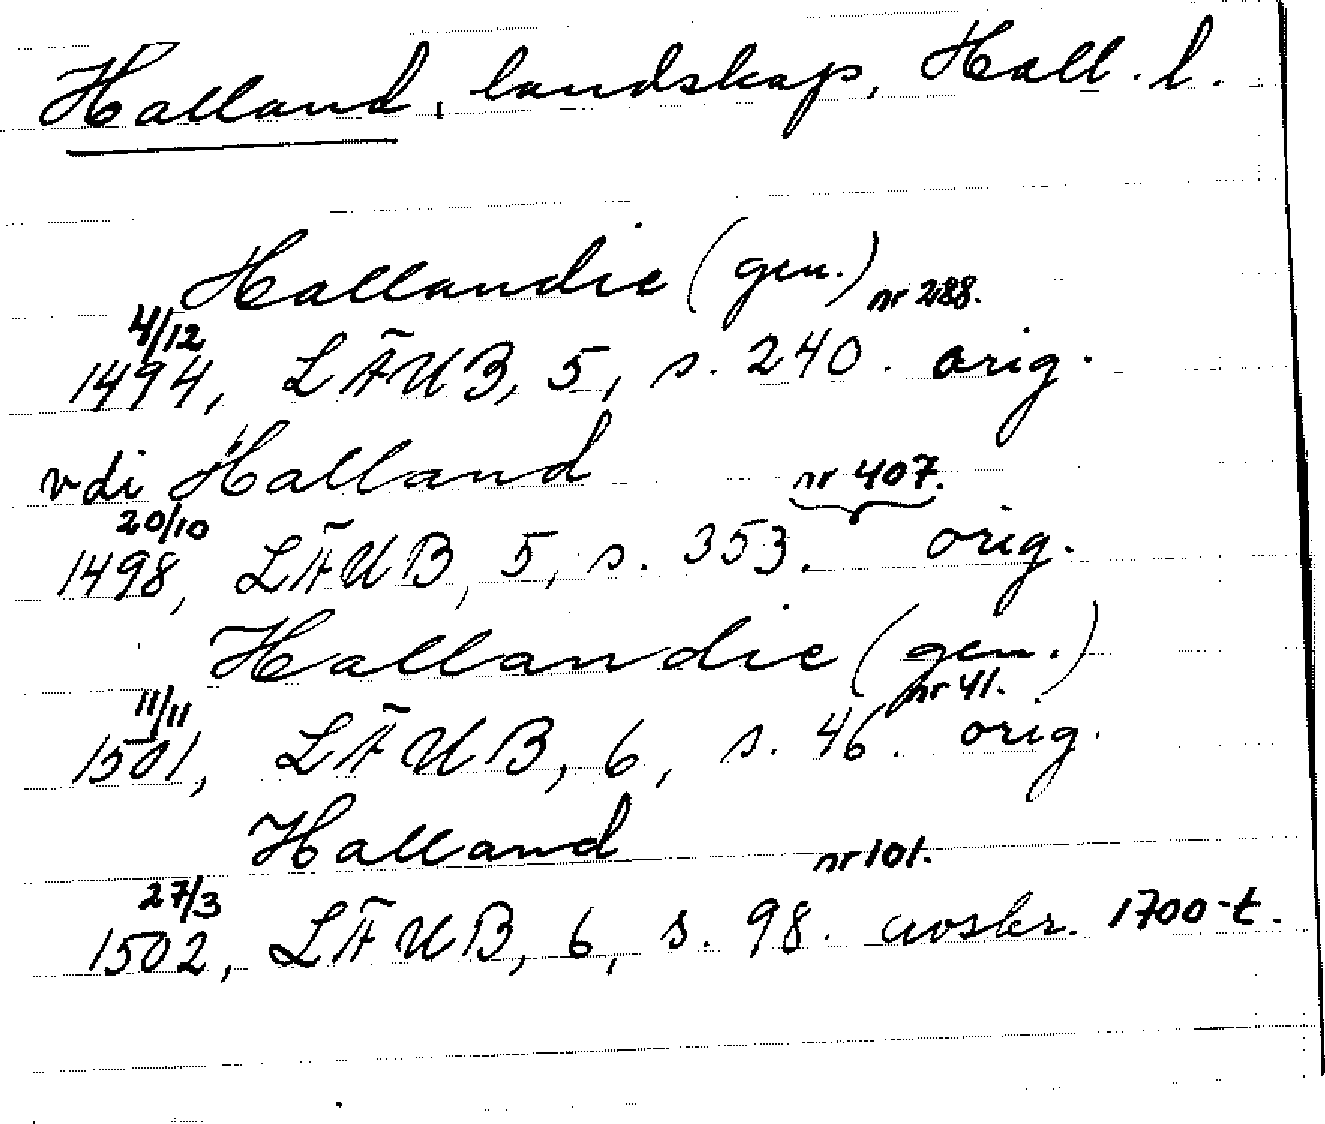 Halland, landskap, Hall. l.
Hallandie (gen.) nr 288.
4/12
1494, LÄUB, 5, s. 240. orig.
vdi Halland nr 407.
20/10
1498, LÄUB, 5, s. 353. orig.
Hallandie (gen.)
11/11 nr 41.
1501, LÄUB, 6, s. 46. orig.
Halland nr 101.
27/3
1502, LÄUB, 6, s. 98. avskr. 1700-t.